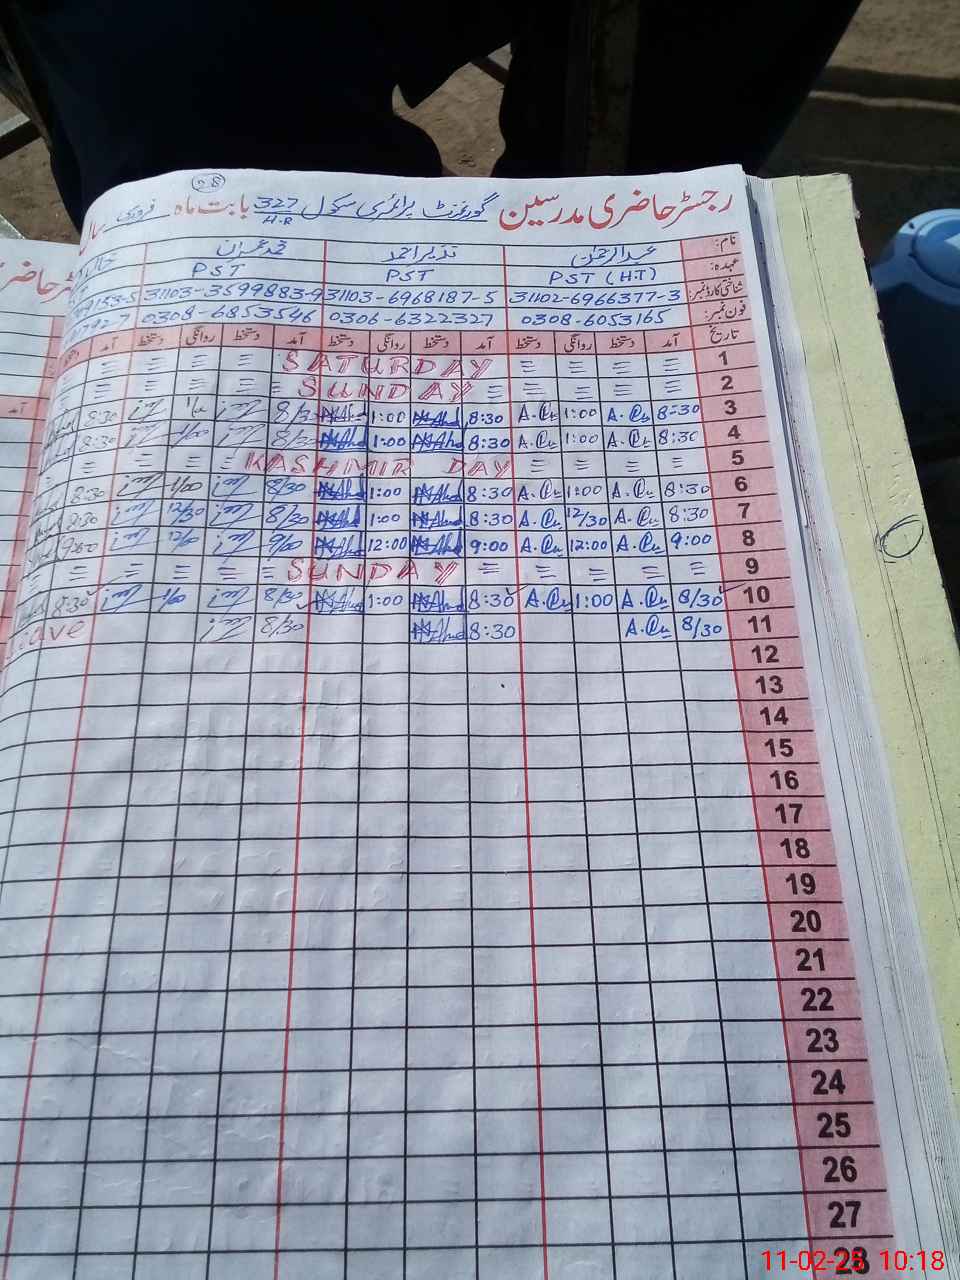 28
رجسٹر حاضری مدرسین گورنمنٹ پرائمری سکول 327/H.R بابت ماہ فروری سال
نام: عبدالرحمٰن نذیر احمد محمد عمران
عہدہ: PST (HT) PST PST
شناختی کارڈ نمبر: 31102-6966377-3 31103-6968187-5 31103-3599883-9 153-5
فون نمبر: 0308-6053165 0306-6322327 0308-6853546 792-7
تاریخ آمد دستخط روانگی دستخط آمد دستخط روانگی دستخط آمد دستخط روانگی دستخط آمد
1 SATURDAY
2 SUNDAY
3 8:30 1:00 8:30 1:00 8/30 8:30
4 8:30 1:00 8:30 1:00 8/30 1/00 8:30
5 KASHMIR DAY
6 8:30 1:00 8:30 1:00 8/30 1/00 8:30
7 8:30 12/30 8:30 1:00 8/30 12/30 8:30
8 9:00 12:00 9:00 12:00 9/00 12/00 9:00
9 SUNDAY
10 8/30 1:00 8:30 1:00 8/30 1/00 8:30
11 8/30 8:30 8/30 Leave
12
13
14
15
16
17
18
19
20
21
22
23
24
25
26
27
28
11-02-25 10:18